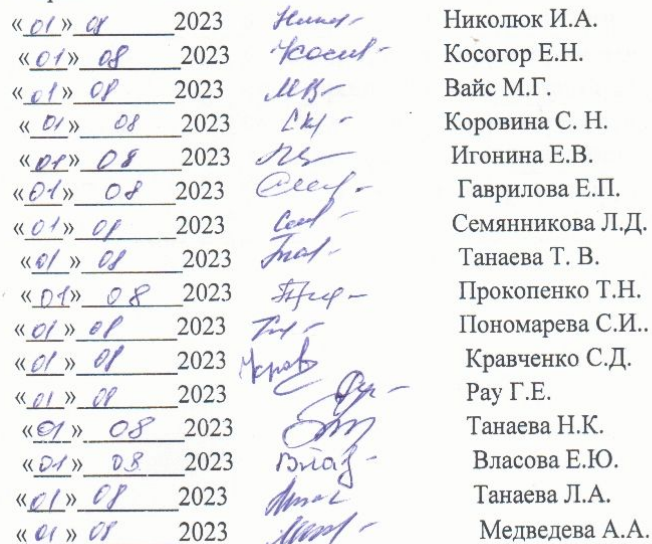 «01» 08 2023 Николюк И.А.
«01» 08 2023 Косогор Е.Н.
«01» 08 2023 Вайс М.Г.
«01» 08 2023 Коровина С. Н.
«01» 08 2023 Игонина Е.В.
«01» 08 2023 Гаврилова Е.П.
«01» 08 2023 Семянникова Л.Д.
«01» 08 2023 Танаева Т. В.
«01» 08 2023 Прокопенко Т.Н.
«01» 08 2023 Пономарева С.И..
«01» 08 2023 Кравченко С.Д.
«01» 08 2023 Рау Г.Е.
«01» 08 2023 Танаева Н.К.
«01» 08 2023 Власова Е.Ю.
«01» 08 2023 Танаева Л.А.
«01» 08 2023 Медведева А.А.